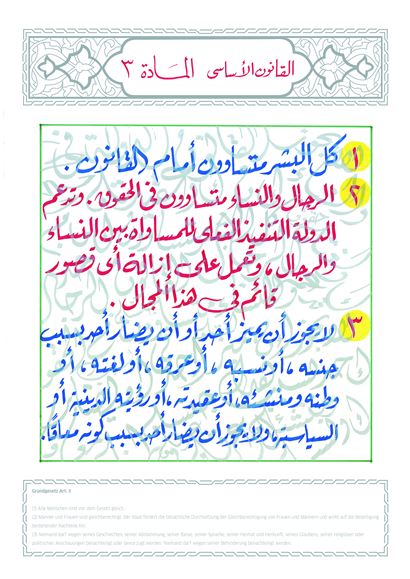 القانون الأساسى المادة ٣
١ كل البشر متساوون أمام القانون .
٢ الرجال والنساء متساوون فى الحقوق . وتدعم
الدولة التنفيذ الفعلى للمساواة بين النساء
والرجال ، وتعمل على إزالة أى قصور
قائم فى هذا المجال .
٣ لا يجوز أن يميز أحد أو أن يضار أحد بسبب
جنسه ، أو نسبه ، أو عرقه ، أو لغته ، أو
وطنه ومنشئه ، أو عقيدته ، أو رؤيته الدينية أو
السياسية، ولا يجوز أن يضار أحد بسبب كونه معاقًا.
Grundgesetz Art. 3
(1) Alle Menschen sind vor dem Gesetz gleich.
(2) Männer und Frauen sind gleichberechtigt. Der Staat fördert die tatsächliche Durchsetzung der Gleichberechtigung von Frauen und Männern und wirkt auf die Beseitigung
bestehender Nachteile hin.
(3) Niemand darf wegen seines Geschlechtes, seiner Abstammung, seiner Rasse, seiner Sprache, seiner Heimat und Herkunft, seines Glaubens, seiner religiösen oder
politischen Anschauungen benachteiligt oder bevorzugt werden. Niemand darf wegen seiner Behinderung benachteiligt werden.